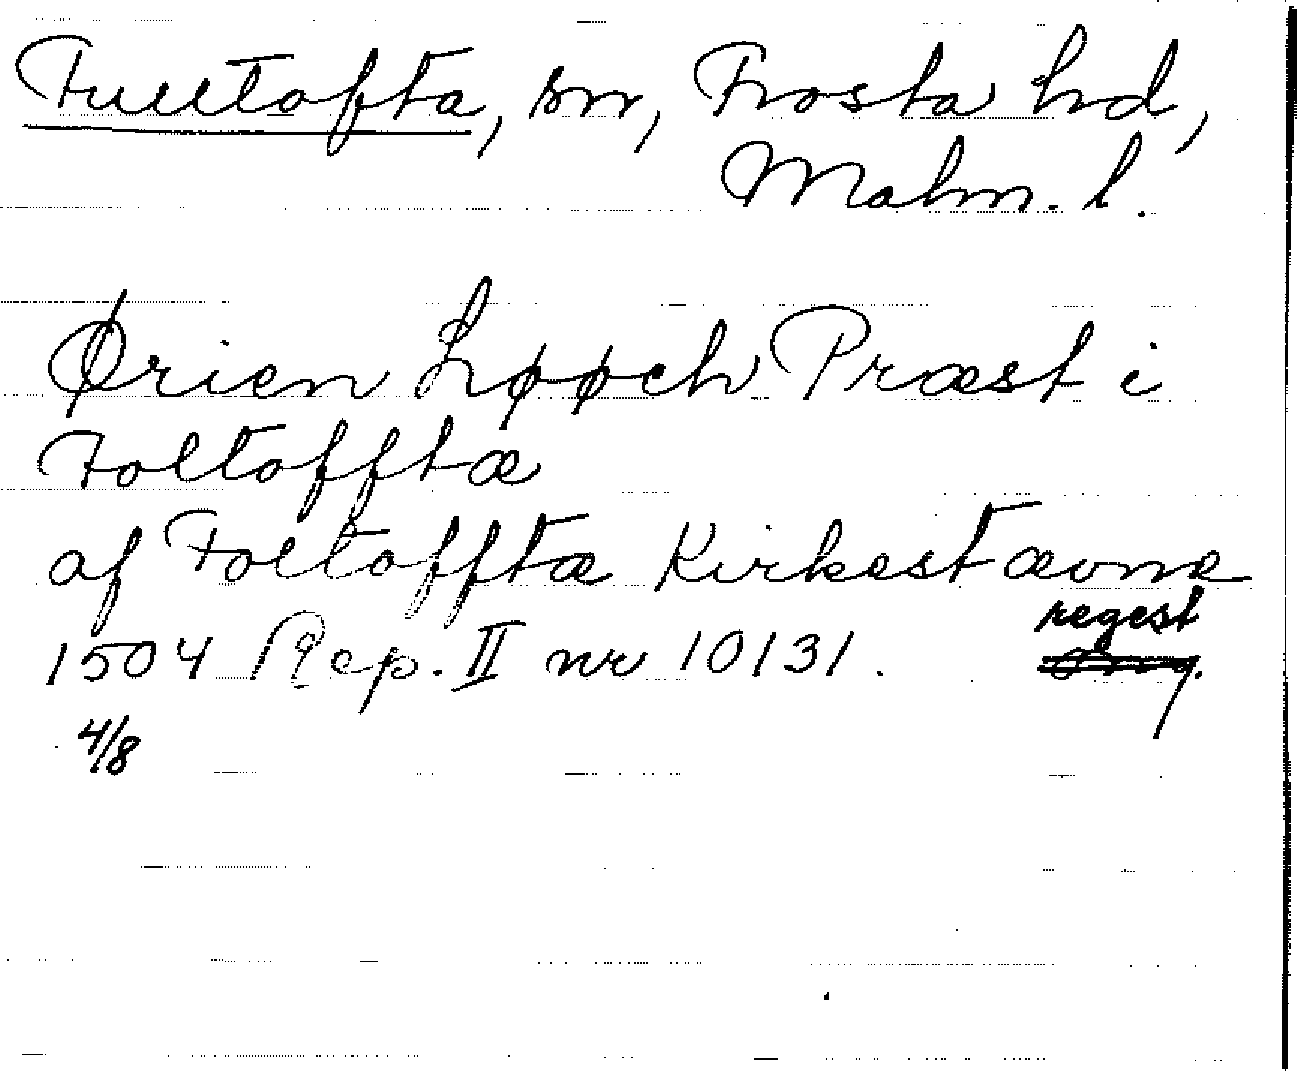 Fulltofta, sn, Frosta hd,
Malm. l.
Ørien Løøch Præst i
Foltofftæ
af Foltofftæ Kirkestævne
regest
1504 Rep. II nr 10131.
4/8